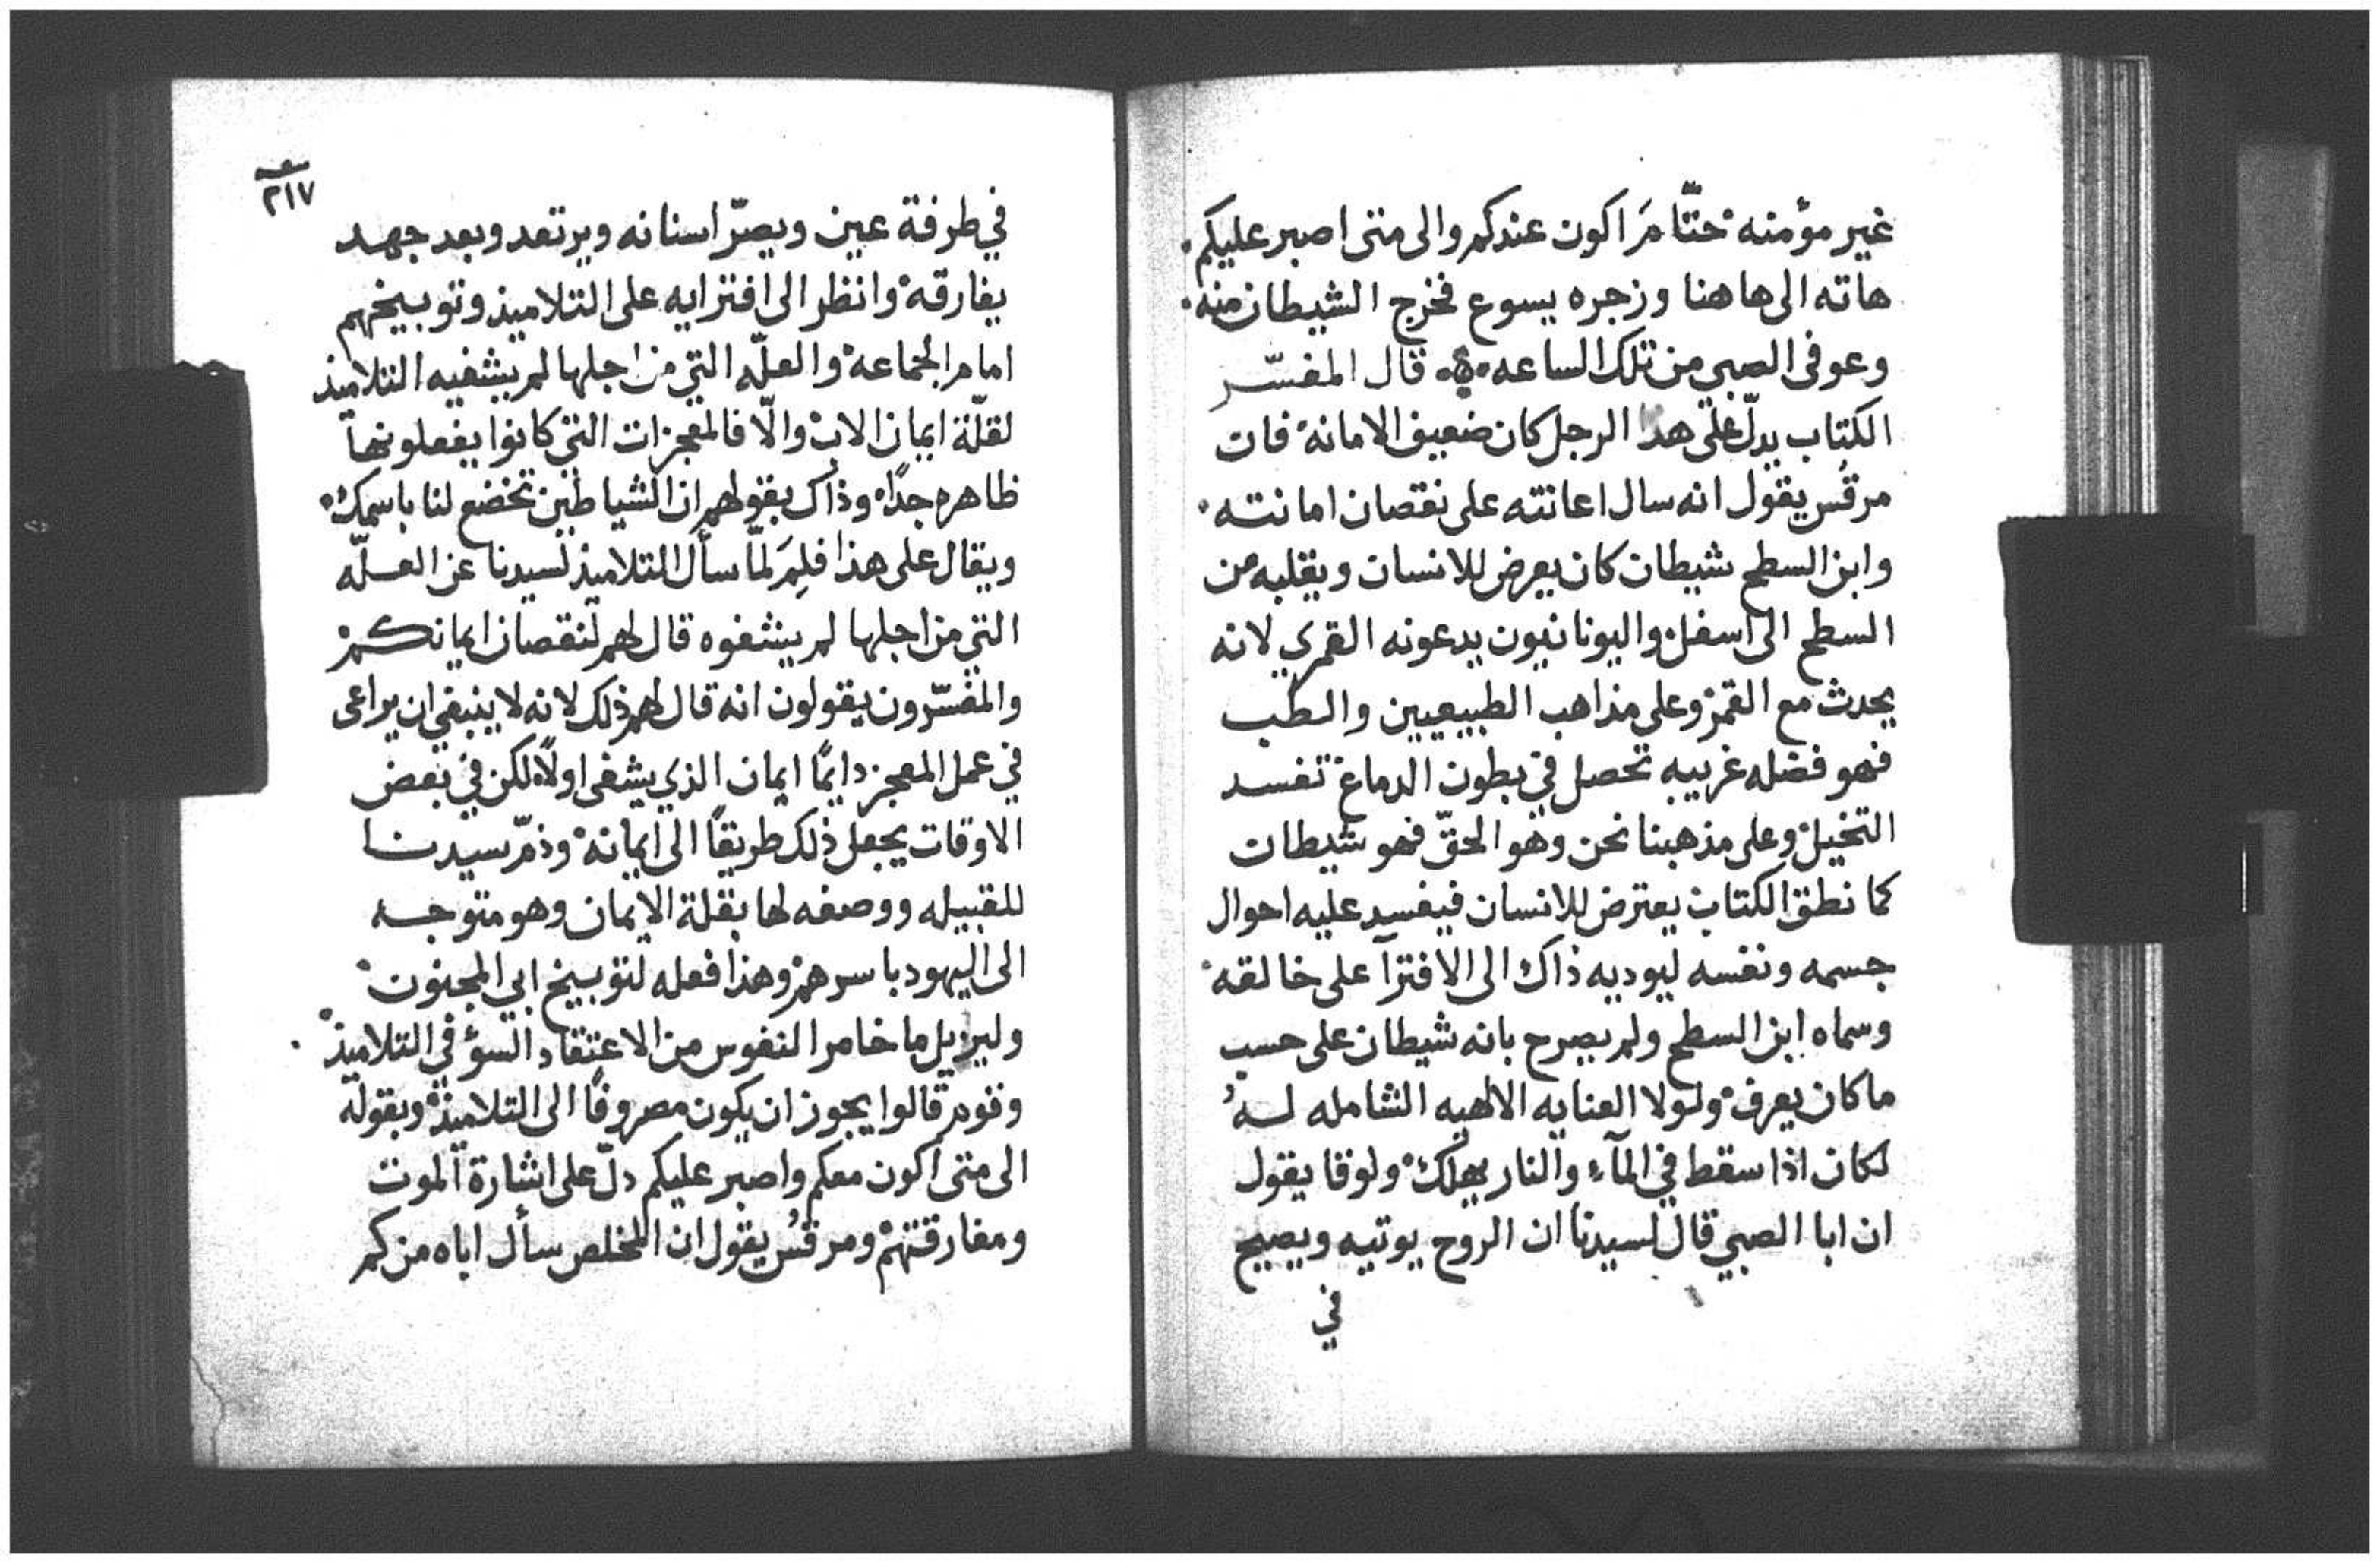 غير مؤمنه حتّا مَ اكون عندكم والى متى اصبر عليكم
هاته الى هاهنا وزجره يسوع فخرج الشيطان منه
وعوفى الصبي من تلك الساعه قال المفسّر
الكتاب يدلّ على هذا الرجل كان ضعيف الامانه فان
مرقُس يقول انه سال اعانته على نقصان امانته
وابن السطح شيطان كان يعرض للانسان ويقلبه من
السطح الى اسفل واليونانيون يدعونه القمري لانه
يحدث مع القمر وعلى مذاهب الطبيعيين والطب
فهو فضله غريبه تحصل في بطون الدماغ تفسد
التخيل وعلى مذهبنا نحن وهو الحقّ فهو شيطان
كما نطق الكتاب يعترض للانسان فيفسد عليه احوال
جسمه ونفسه ليوديه ذاك الى الافترآ على خالقه
وسماه ابن السطح ولم يصرح بانه شيطان على حسب
ما كان يعرف ولولا العنايه الالهيه الشامله له
لكان اذا سقط في المآء والنار يهلك ولوقا يقول
ان ابا الصبي قال لسيدنا ان الروح يوتيه ويصيح
في
٢١٧
في طرفة عين ويصرّ اسنانه ويرتعد وبعد جهد
يفارقه وانظر الى افترايه على التلاميذ وتوبيخهم
امام الجماعه والعلّه التي من اجلها لم يشفيه التلاميذ
لقلّة ايمان الاب والّا فالمعجزات التي كانوا يفعلونها
ظاهره جدًا وذاك بقولهم ان الشياطين تخضع لنا باسمك
ويقال على هذا فلِمَ لمّا سأل التلاميذ لسيدنا عن العلّه
التي من اجلها لم يشفوه قال لهم لنقصان ايمانكم
والمفسّرون يقولون انه قال لهم ذلك لانه لا ينبغي ان يراعى
في عمل المعجز دايمًا ايمان الذي يشفى اولًا لكن في بعض
الاوقات يجعل ذلك طريقًا الى ايمانه وذمّ سيدنا
للقبيله ووصفه لها بقلة الايمان وهو متوجه
الى اليهود باسرهم وهذا فعله لتوبيخ ابي المجنون
وليزيل ما خامر النفوس من الاعتقاد السؤ في التلاميذ
وقوم قالوا يجوز ان يكون مصروفًا الى التلاميذ وبقوله
الى متى اكون معكم واصبر عليكم دلّ على اشارة الموت
ومفارقتهم ومرقُس يقول ان المخلص سأل اباه من كم